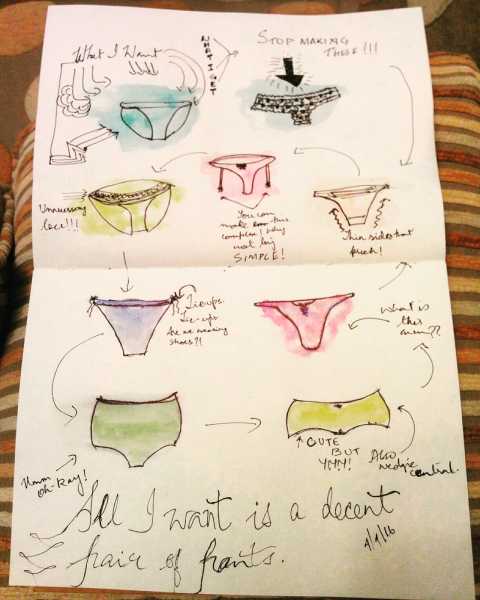 What I Want
WHAT I GET
STOP MAKING
THESE!!!
Unnecessary
lace!!!
You can
make
complex! Why
not big
SIMPLE!
Thin sides that
pinch!
Tie-ups.
Tie-ups
Are we wearing
shoes?!
What is
this
even??
Hmm
Oh-Kay!
CUTE
BUT
YMM!
Also
wedgie
central.
All I want is a decent
pair of pants.
4/4/16